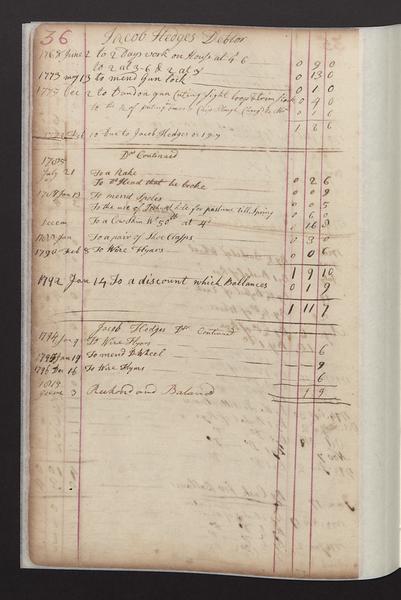 36 Jacob Hedges Debtor
1768 June 2 to 2 Days work on House at 4/6 0 9 0
to 2 at 3-6 & 2 at 0 13 0
1773 my 13 to mend Gun lock 0 1 0
1775 Dec 2 to gun Cuting Sight 0 4 0
to the 0 1 0
1 8 6
10 Due to Jacob Hedges
Dr Continued
1785
July 21 To a Rake 0 2 6
To Head that he broke 0 0 9
Jan 13 To mend Spoles 0 0 5
To the use of for pasture till Spring 0 6 0
Decem To a Cow Skin Wt 50 lb at 4d 0 16 8
Jan To a pair of Shoe Clasps 0 3 0
1790 Feb 8 To Wire Flyars 0 0 6
1 9 10
1792 Jan 14 To a discount which Ballances 0 1 9
1 11 7
Jacob Hedges Dr Continued
1794 Jan 9 To Wire Flyars 6
1795 Jan 19 To mend Wheel 9
1796 Dec 16 To Wire Flyars 6
June 3 Reckond and Balancd 1 9